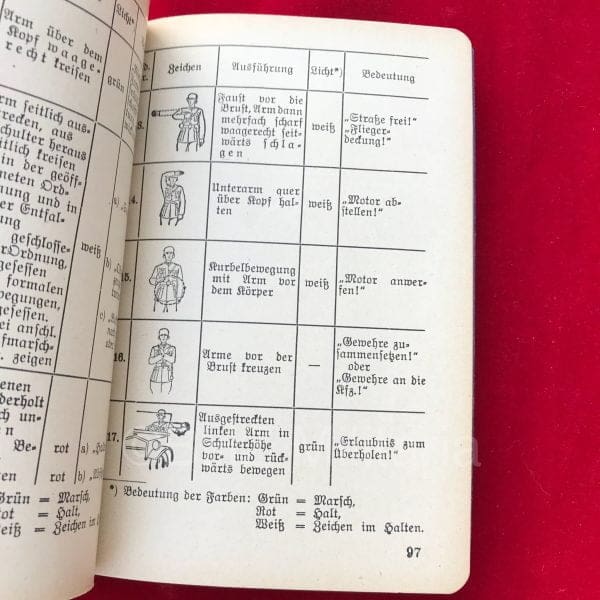 Arm über dem
Kopf waage-
recht kreisen
grün
Licht*
seitlich aus-
strecken, aus
Schulter heraus
kreisen
in der geöff-
neten Ord-
nung und in
der Entfal-
tung
geschlosse-
Ordnung,
gesessen
formalen
Bewegungen,
gesessen.
bei anschl.
zeigen
weiß
a)
b)
c)
Be-
rot a)
rot b)
Grün = Marsch,
Rot = Halt,
Weiß = Zeichen im
Zeichen Ausführung Licht*) Bedeutung
8. Faust vor die
Brust, Arm dann
mehrfach scharf
waagerecht seit-
wärts schla-
gen
weiß
„Straße frei!“
„Flieger-
deckung!“
14. Unterarm quer
über Kopf hal-
ten
weiß
„Motor ab-
stellen!“
15. Kurbelbewegung
mit Arm vor
dem Körper
weiß
„Motor anwer-
fen!“
16. Arme vor der
Brust kreuzen
—
„Gewehre zu-
sammensetzen!“
oder
„Gewehre an die
Kfz.!“
17. Ausgestreckten
linken Arm in
Schulterhöhe
vor- und rück-
wärts bewegen
grün
„Erlaubnis zum
Überholen!“
*) Bedeutung der Farben: Grün = Marsch,
Rot = Halt,
Weiß = Zeichen im Halten.
97